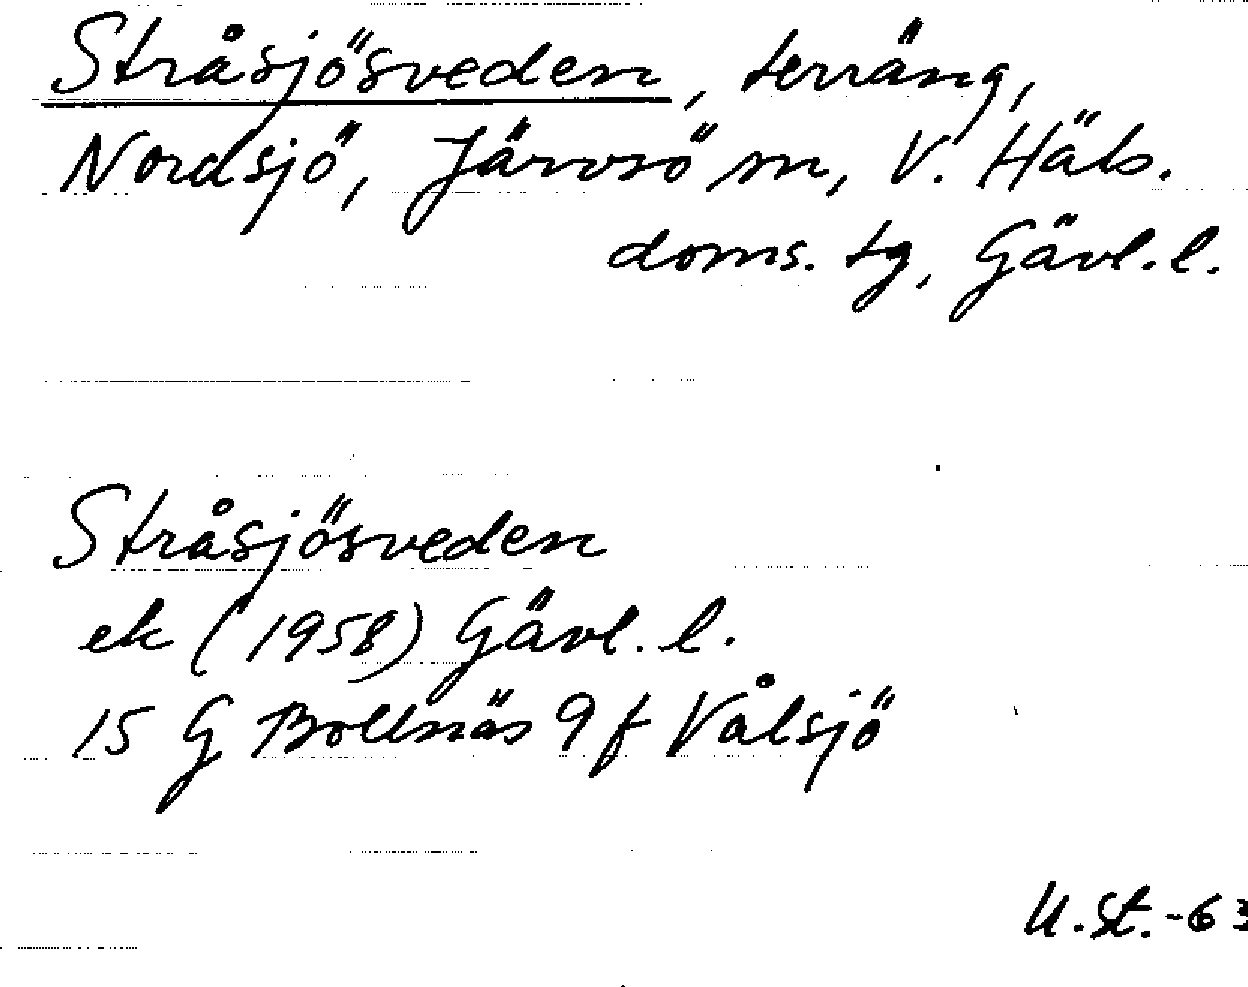 Stråsjösveden, terräng,
Nordsjö, Järvsö sn, V. Häls.
doms. tg, Gävl. l.
Stråsjösveden
ek (1958) Gävl. l.
15 G Bollnäs 9 f Vålsjö
U. St. -63